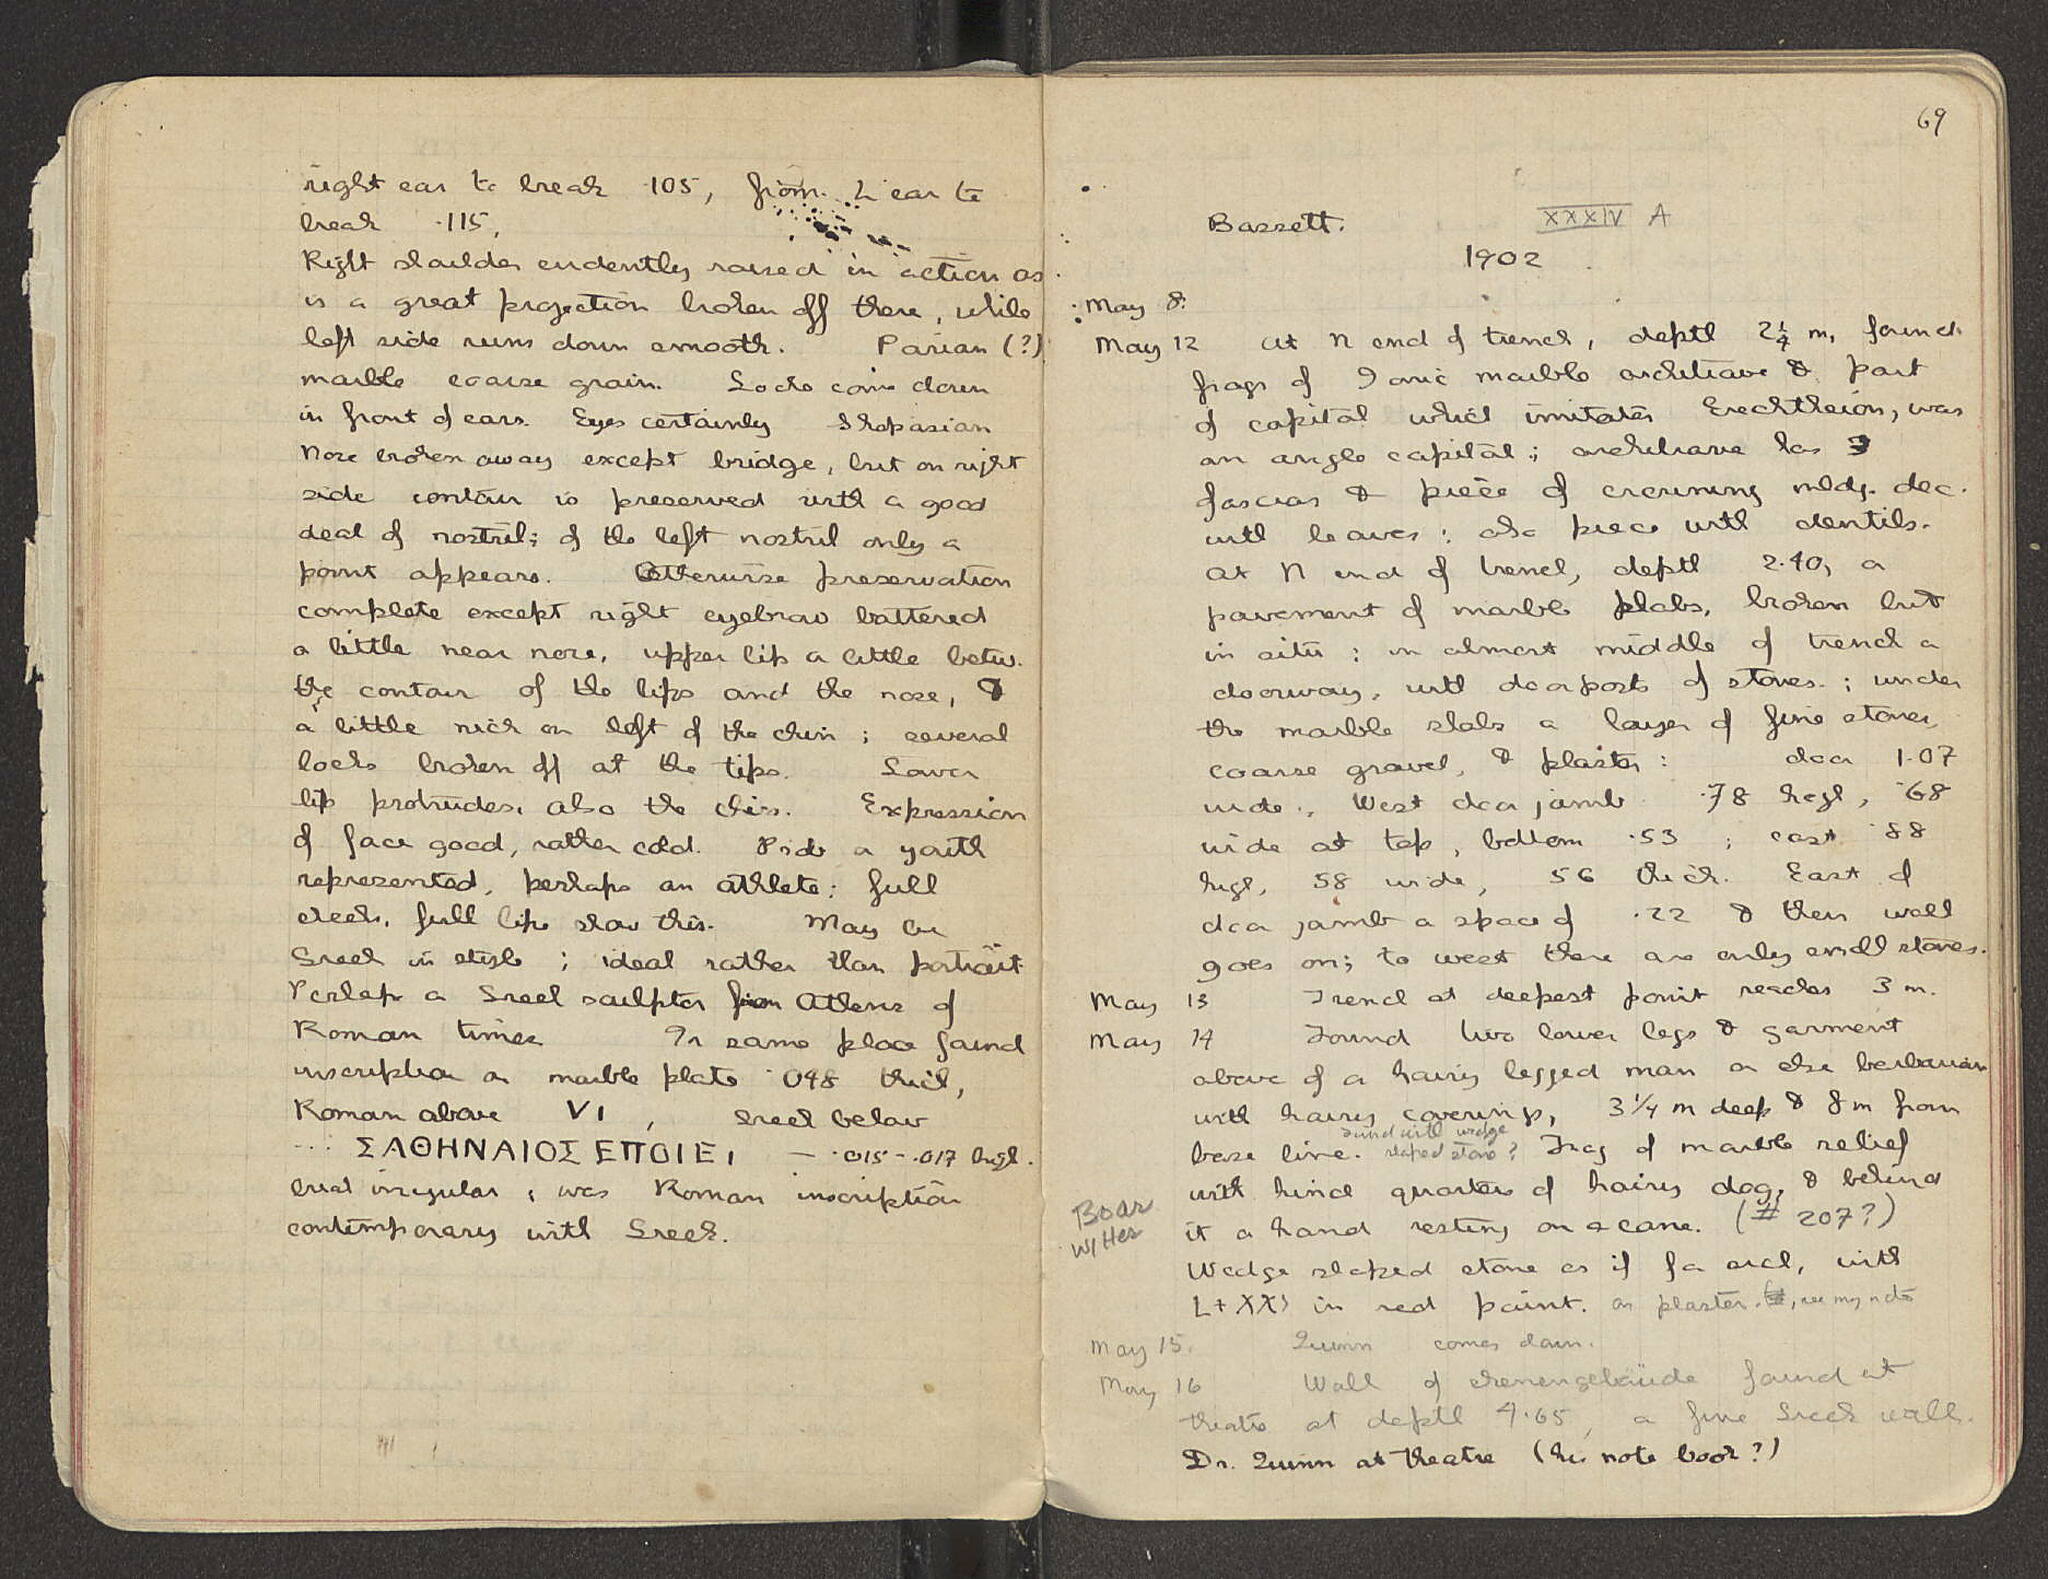 right ear to break .105, from L ear to
break .115,
Right shoulder evidently raised in action as
is a great projection broken off there, while
left side runs down smooth. Parian (?)
marble coarse grain. Locks come down
in front of ears. Eyes certainly Skopasian
Nose broken away except bridge, but on right
side contour is preserved with a good
deal of nostril; of the left nostril only a
point appears. Otherwise preservation
complete except right eyebrow battered
a little near nose, upper lip a little betw.
the contour of the lips and the nose, &
a little nick on left of the chin; several
locks broken off at the tips. Lower
lip protrudes, also the chin. Expression
of face good, rather cold. Prob a youth
represented, perhaps an athlete: full
cheeks, full lips show this. May be
Greek in style; ideal rather than portrait
Perhaps a Greek sculptor from Athens of
Roman times In same place found
inscription on marble plate .048 thick,
Roman above VI, Greek below
... ΣΑΘΗΝΑΙΟΣ ΕΠΟΙΕΙ — .015-.017 high.
but irregular; was Roman inscription
contemporary with Greek.
69
Bassett. XXXIV A
1902
May 8:
May 12 At N end of trench, depth 2¼ m, found
frags of Ionic marble architrave & part
of capital which imitates Erechtheion, was
an angle capital; architrave has 3
fascias & piece of crowning mldg. dec.
with leaves; also piece with dentils.
At N end of trench, depth 2.40, a
pavement of marble slabs, broken but
in situ; in almost middle of trench a
doorway, with doorposts of stones; under
the marble slabs a layer of fine stones,
coarse gravel, & plaster: door 1.07
wide., West door jamb .78 high, .68
wide at top, bottom .53; east .88
high, 58 wide, 56 thick. East of
door jamb a space of .22 & then wall
goes on; to west there are only small stones.
May 13 Trench at deepest point reaches 3 m.
May 14 Found two lower legs & garment
above of a hairy legged man or else barbarian
with hairy coverings, 3 1/4 m deep & 8m from
found with wedge
base line. shaped stone? Frag of marble relief
with hind quarters of hairy dog, & behind
Boar
it a hand resting on a cane. (# 207?)
Wedge shaped stone as if for arch, with
L+XX> in red paint. on plaster. , see my note
May 15. Quinn comes down.
May 16 Wall of skenengebäude found at
theatre at depth 4.65, a fine Greek wall.
Dr. Quinn at theatre (his note book?)